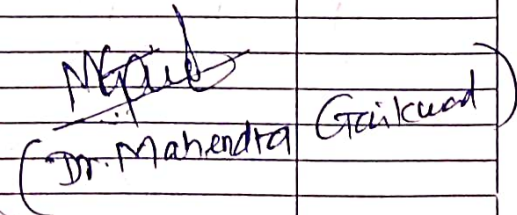 (Dr. Mahendra Gaikwad)